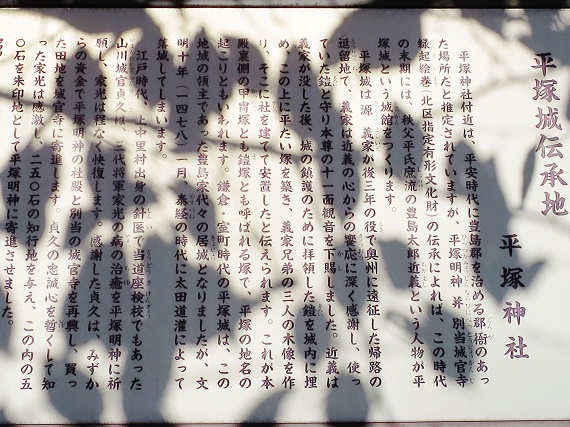 平塚城伝承地
平塚神社
平塚神社付近は、平安時代に豊島郡を治める郡衙のあっ
た場所だと推定されていますが、平塚明神并別当城官寺
縁起絵巻(北区指定有形文化財)の伝承によれば、この時代
の末期には、秩父平氏庶流の豊島太郎近義という人物が平
塚城という城館をつくります。
平塚城は源義家が後三年の役で奥州に遠征した帰路の
逗留地で、義家は近義の心からの饗応に深く感謝し、使っ
ていた鎧と守り本尊の十一面観音を下賜しました。近義は
義家が没した後、城の鎮護のために拝領した鎧を城内に埋
め、この上に平たい塚を築き、義家兄弟の三人の木像を作
り、そこに社を建てて安置したと伝えられます。これが本
殿裏側の甲冑塚とも鎧塚とも呼ばれる塚で、平塚の地名の
起こりともいわれます。鎌倉・室町時代の平塚城は、この
地域の領主であった豊島家代々の居城となりましたが、文
明十年(一四七八)一月、泰経の時代に太田道灌によって
落城してしまいます。
江戸時代、上中里村出身の針医で当道座検校でもあった
山川城官貞久は、三代将軍家光の病の治癒を平塚明神に祈
願し、家光は程なく快復します。感謝した貞久は、みずか
らの資金で平塚明神の社殿と別当の城官寺を再興し、買っ
た田地を城官寺に寄進します。貞久の忠誠心を暫くして知
った家光は感激し、二五〇石の知行地を与え、この内の五
〇石を朱印地として平塚明神に寄進させました。